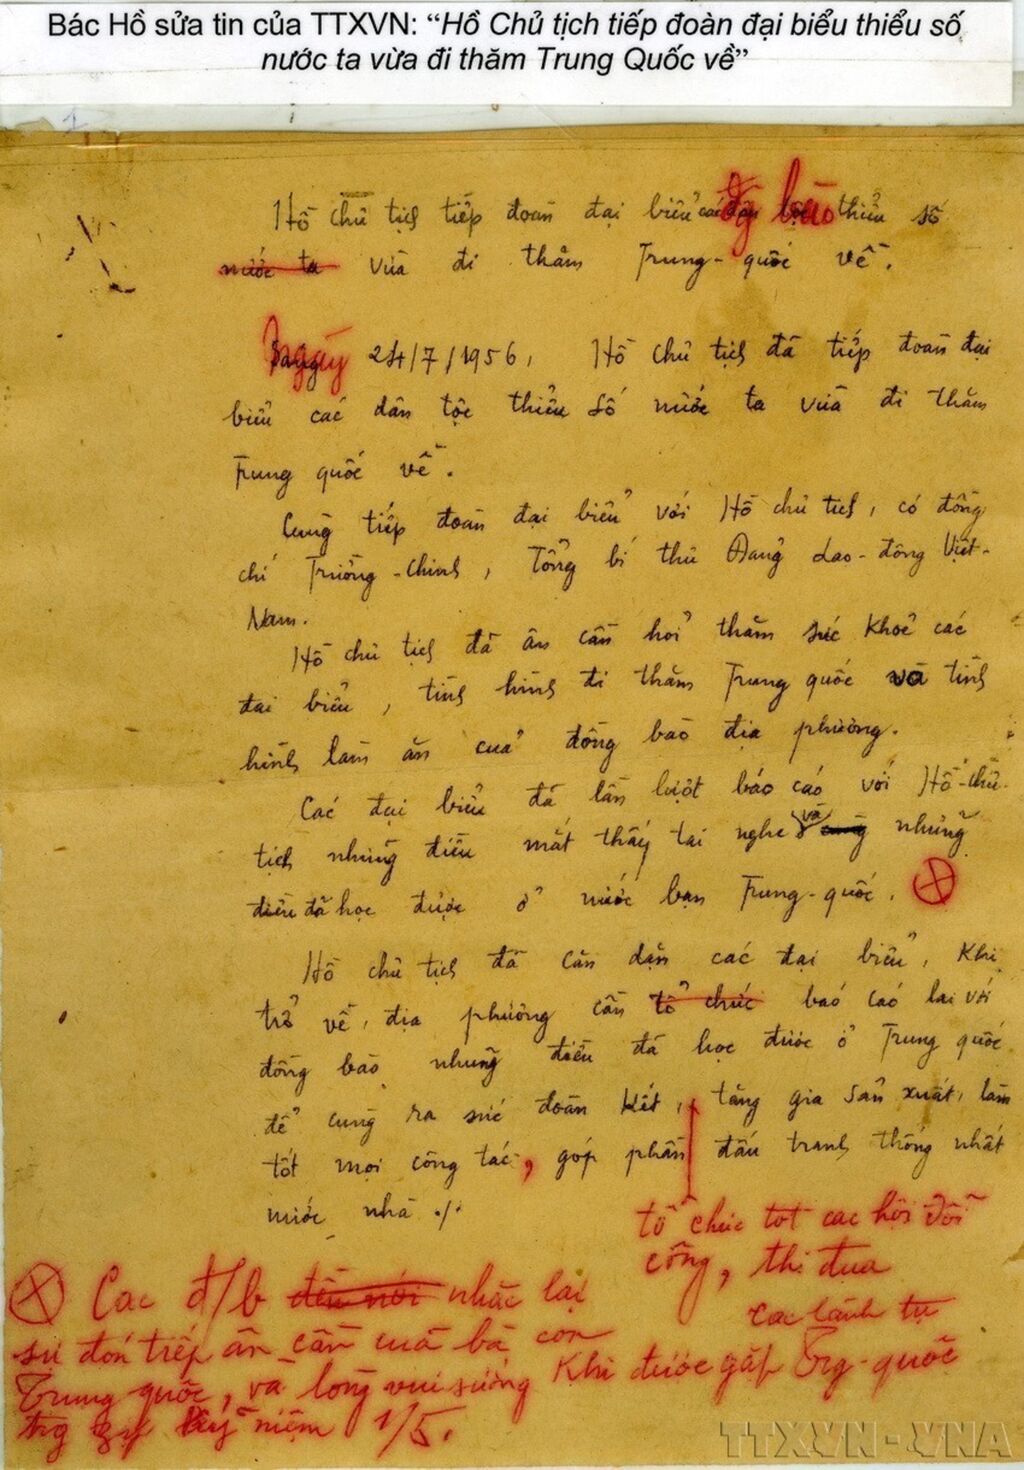 Bác Hồ sửa tin của TTXVN: “Hồ Chủ tịch tiếp đoàn đại biểu thiểu số
nước ta vừa đi thăm Trung Quốc về”
Hồ chủ tịch tiếp đoàn đại biểu các dân tộc đg bào thiểu số
nước ta vừa đi thăm Trung-quốc về.
Ngày 24/7/1956, Hồ chủ tịch đã tiếp đoàn đại
biểu các dân tộc thiểu số nước ta vừa đi thăm
Trung quốc về.
Cùng tiếp đoàn đại biểu với Hồ chủ tịch, có đồng
chí Trường-chinh, Tổng bí thư Đảng Lao-động Việt-
Nam.
Hồ chủ tịch đã ân cần hỏi thăm sức khoẻ các
đại biểu, tình hình đi thăm Trung quốc và tình
hình làm ăn của đồng bào địa phương.
Các đại biểu đã lần lượt báo cáo với Hồ-chủ-
tịch những điều mắt thấy tai nghe và những
điều đã học được ở nước bạn Trung-quốc.
Hồ chủ tịch đã căn dặn các đại biểu, khi
trở về, địa phương cần tổ chức báo cáo lại với
đồng bào những điều đã học được ở Trung quốc
để cùng ra sức đoàn kết, tăng gia sản xuất, làm
tốt mọi công tác, góp phần đấu tranh thống nhất
nước nhà ./.
tổ chức tot các hội đổi
công, thi đua
Cac đ/b nhắc lại
sự đón tiếp ân cần của bà con
Trung quốc, và lòng vui sướng khi được gặp các lãnh tụ Trg-quốc
trg kỷ niệm 1/5.
TTXVN-VNA